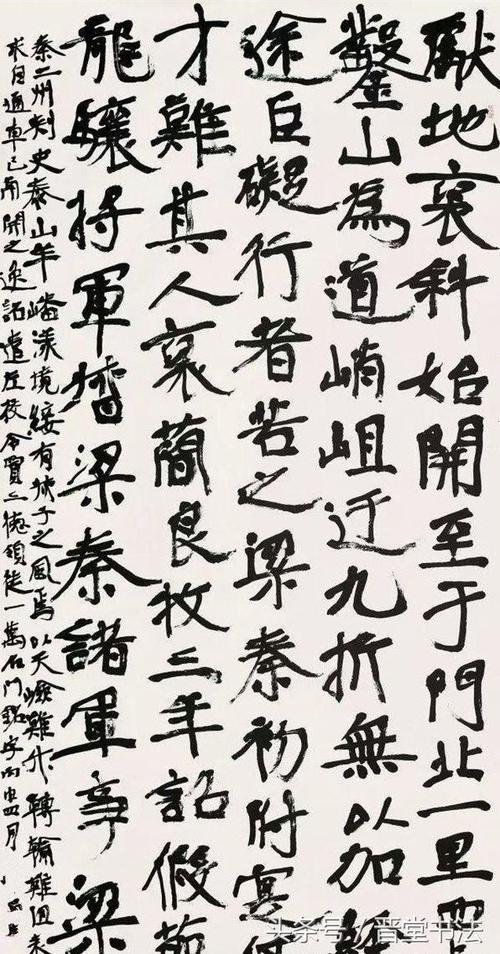 獻地褒斜始開至于門北一里西
鑿山為道峭岨迂九折無以加經
途巨礙行者苦之梁秦初附寔
才難其人褒簡良牧三年詔假節
龍驤將軍督梁秦諸軍事梁
秦二州刺史泰山羊嶓漾境綏有叔子之風焉以天嶮難升轉輸難阻表
求自通車已南開之逸詔遣左校令賈三德領徒一萬石門銘字丙申四月
头条号/晋堂书法